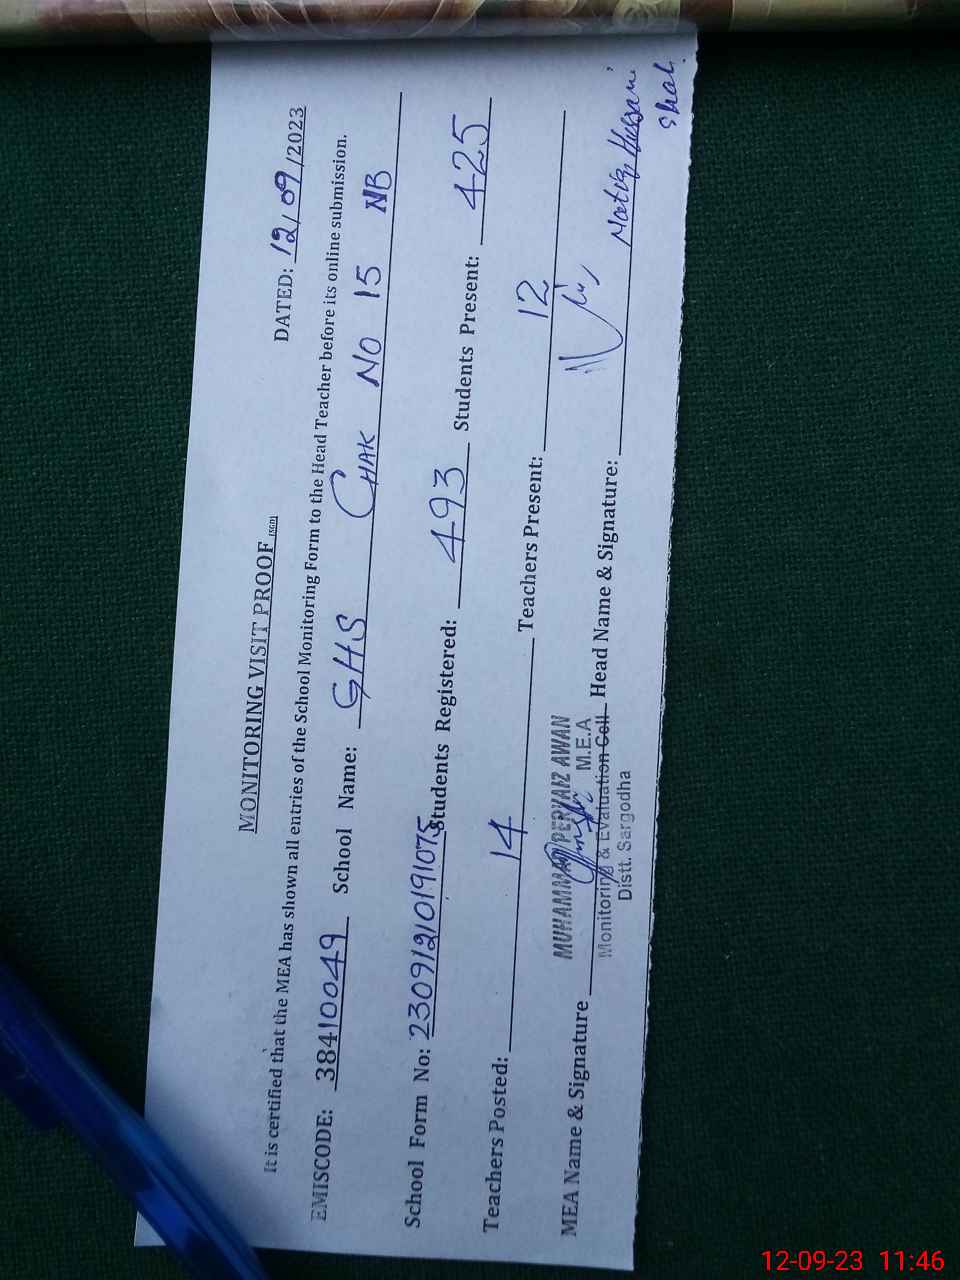 MONITORING VISIT PROOF (SGD)
DATED: 12/09/2023
It is certified that the MEA has shown all entries of the School Monitoring Form to the Head Teacher before its online submission.
EMISCODE: 38410049 School Name: GHS CHAK NO 15 NB
School Form No: 23091210191075 Students Registered: 493 Students Present: 425
Teachers Posted: 14 Teachers Present: 12
MUHAMMAD PERVAIZ AWAN
M.E.A
MEA Name & Signature Head Name & Signature: Hussain
Shah.
Monitoring & Evaluation Cell
Distt. Sargodha
12-09-23 11:46